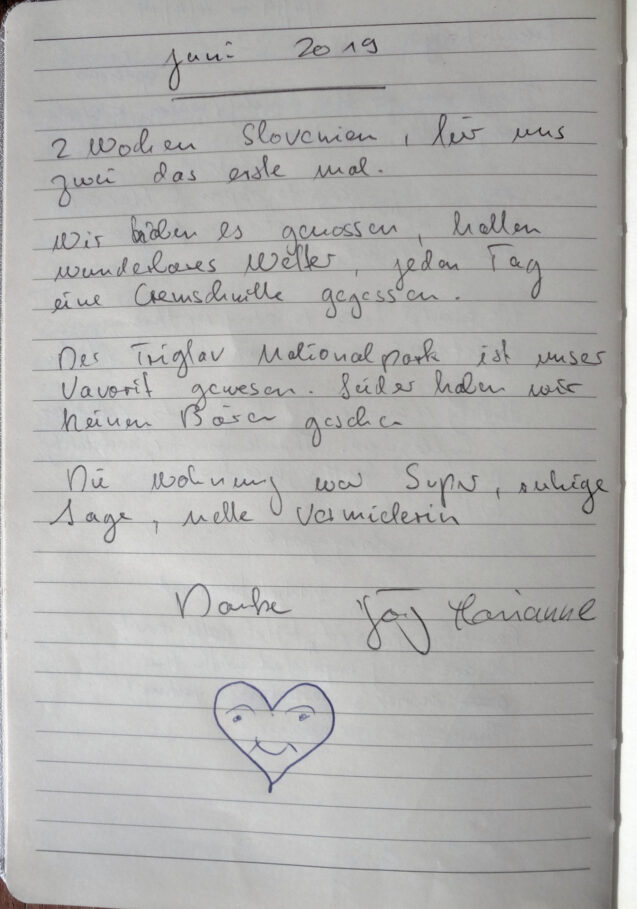 Juni 2019
2 Wochen Slovenien, für uns
zwei das erste mal.
Wir haben es genossen, hatten
wunderbares Wetter, jeden Tag
eine Cremschnitte gegessen.
Der Triglav Nationalpark ist unser
Vavorit gewesen. Leider haben wir
keinen Bären gesehen
Die Wohnung war Super, ruhige
Lage, nette Vermieterin
Danke Marianne